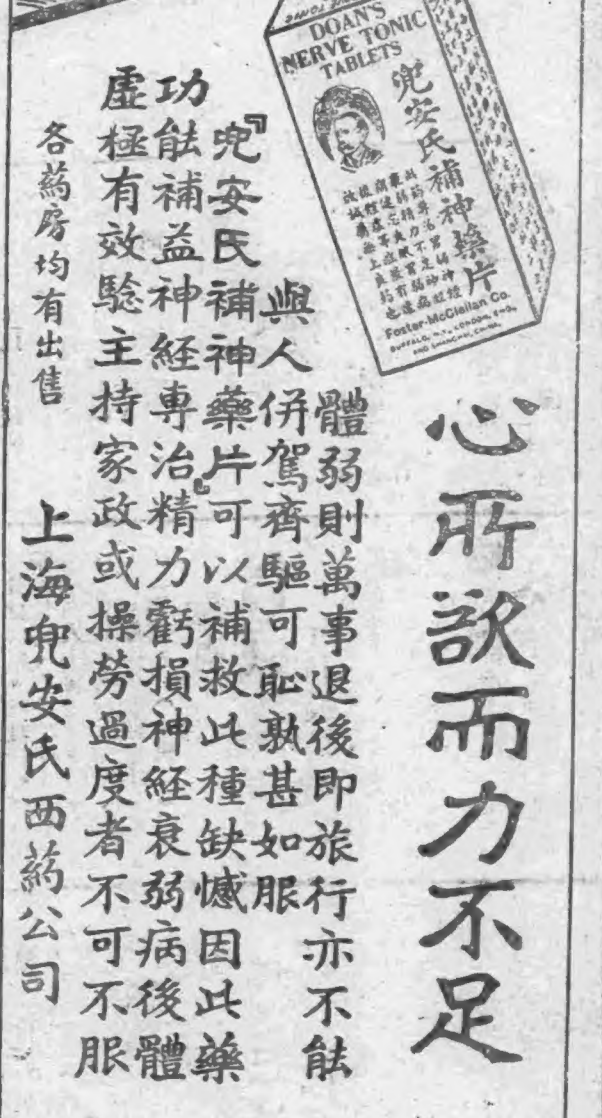 DOAN'S
NERVE TONIC
TABLETS
兜安氏補神藥片
Foster-McClellan Co.
BUFFALO, N.Y., LONDON, ENG.,
AND SHANGHAI, CHINA.
心所欲而力不足
體弱則萬事退後即旅行亦不能
與人併駕齊驅可恥孰甚如服
『兜安氏補神藥片』可以補救此種缺憾因此藥
功能補益神經專治精力虧損神經衰弱病後體
虛極有效驗主持家政或操勞過度者不可不服
各葯房均有出售
上海兜安氏西葯公司